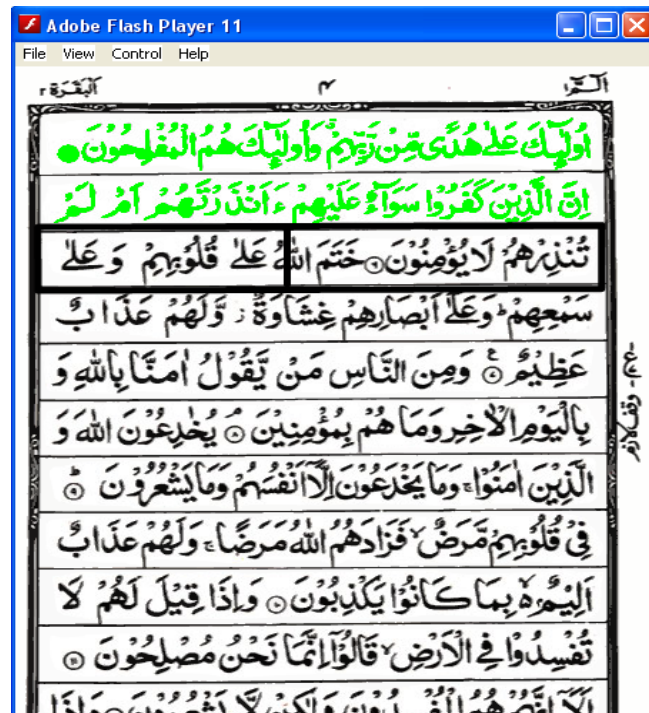 Adobe Flash Player 11
File View Control Help
الٓـمّٓ ١ ٤ اَلْبَقَرَة ٢
اُولٰٓئِكَ عَلٰى هُدًى مِّنْ رَّبِّهِمْ وَاُولٰٓئِكَ هُمُ الْمُفْلِحُوْنَ
اِنَّ الَّذِيْنَ كَفَرُوْا سَوَآءٌ عَلَيْهِمْ ءَاَنْذَرْتَهُمْ اَمْ لَمْ
تُنْذِرْهُمْ لَا يُؤْمِنُوْنَ ٦ خَتَمَ اللّٰهُ عَلٰى قُلُوْبِهِمْ وَ عَلٰى
سَمْعِهِمْ ؕ وَعَلٰٓى اَبْصَارِهِمْ غِشَاوَةٌ ز وَّلَهُمْ عَذَابٌ
عَظِيْمٌ ٧ ع وَمِنَ النَّاسِ مَنْ يَّقُوْلُ اٰمَنَّا بِاللّٰهِ وَ
بِالْيَوْمِ الْاٰخِرِ وَمَا هُمْ بِمُؤْمِنِيْنَ ٨ م يُخٰدِعُوْنَ اللّٰهَ وَ
الَّذِيْنَ اٰمَنُوْا ۚ وَمَا يَخْدَعُوْنَ اِلَّآ اَنْفُسَهُمْ وَمَا يَشْعُرُوْنَ ٩ ؕ
فِيْ قُلُوْبِهِمْ مَّرَضٌ ۙ فَزَادَهُمُ اللّٰهُ مَرَضًا ۚ وَلَهُمْ عَذَابٌ
اَلِيْمٌۢ ۵ بِمَا كَانُوْا يَكْذِبُوْنَ ١٠ وَاِذَا قِيْلَ لَهُمْ لَا
تُفْسِدُوْا فِي الْاَرْضِ ۙ قَالُوْٓا اِنَّمَا نَحْنُ مُصْلِحُوْنَ ١١
اَلَآ اِنَّهُمْ هُمُ الْمُفْسِدُوْنَ وَلٰكِنْ لَّا يَشْعُرُوْنَ وَاِذَا
وقف لازم